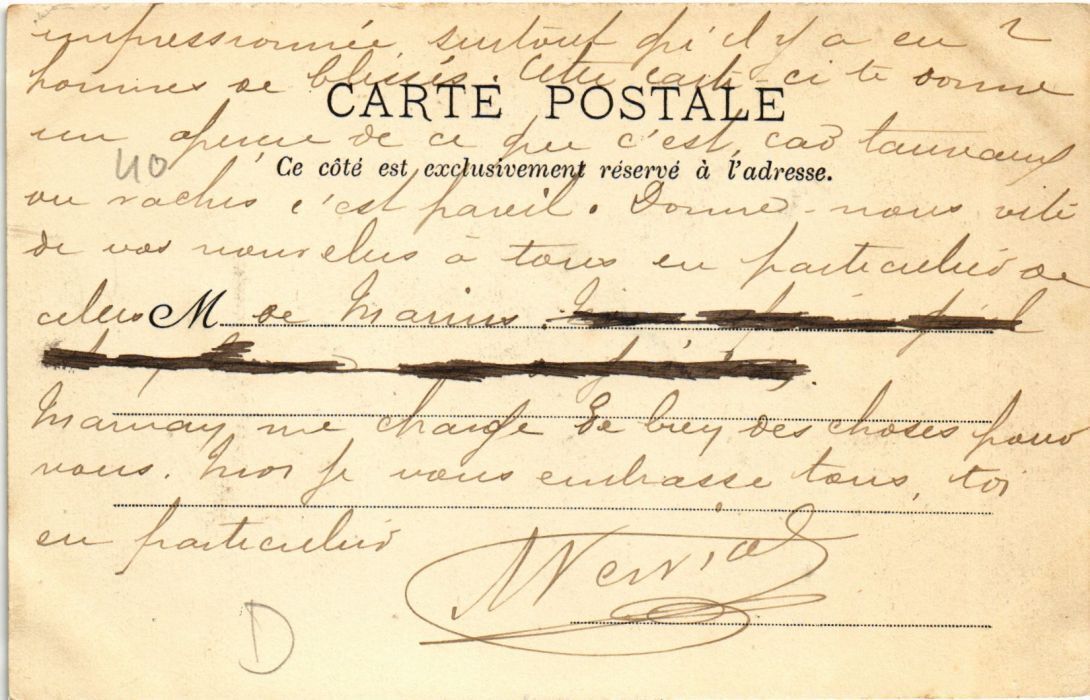 impressionnée, surtout qu'il y a eu 2
hommes de blessés. Cette carte-ci te donne
CARTE POSTALE
un aperçu de ce que c'est, car taureaux
40
Ce côté est exclusivement réservé à l'adresse.
ou vaches c'est pareil. Donne-nous vite
de vos nouvelles à tous en particulier de
celles M de Marius.
me charge de bien des choses pour
vous. Moi je vous embrasse tous, toi
en particulier
D